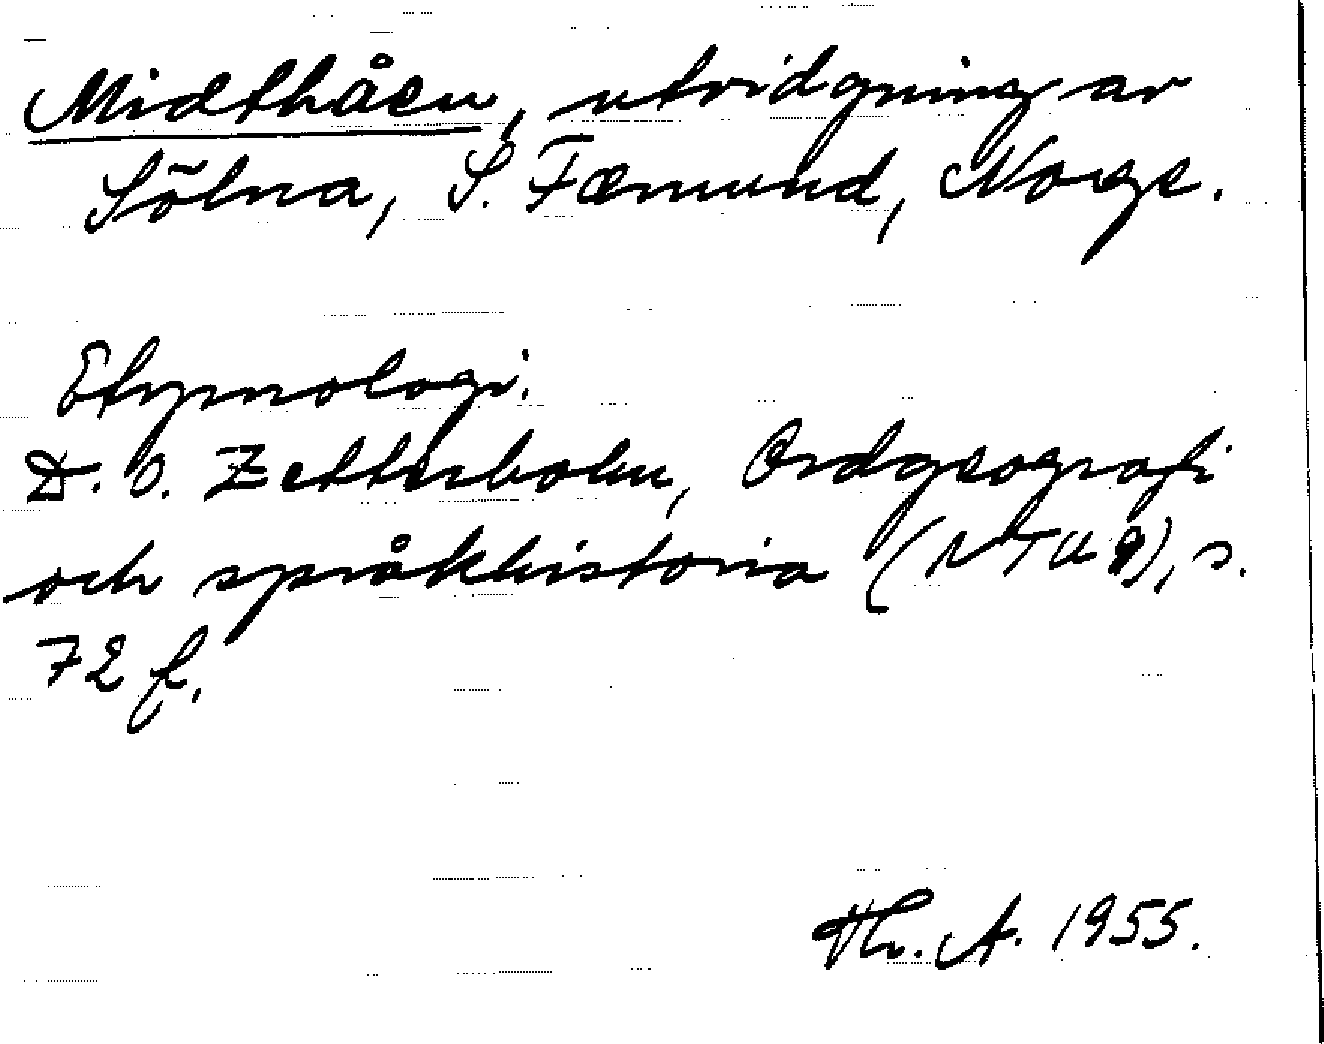 Midthåen, utvidgning av
Sölna, S. Fæmund, Norge.
Etymologi.
D. O. Zetterholm, Ordgeografi
och språkhistoria (NTU 9), s.
72 f.
Th. A. 1955.